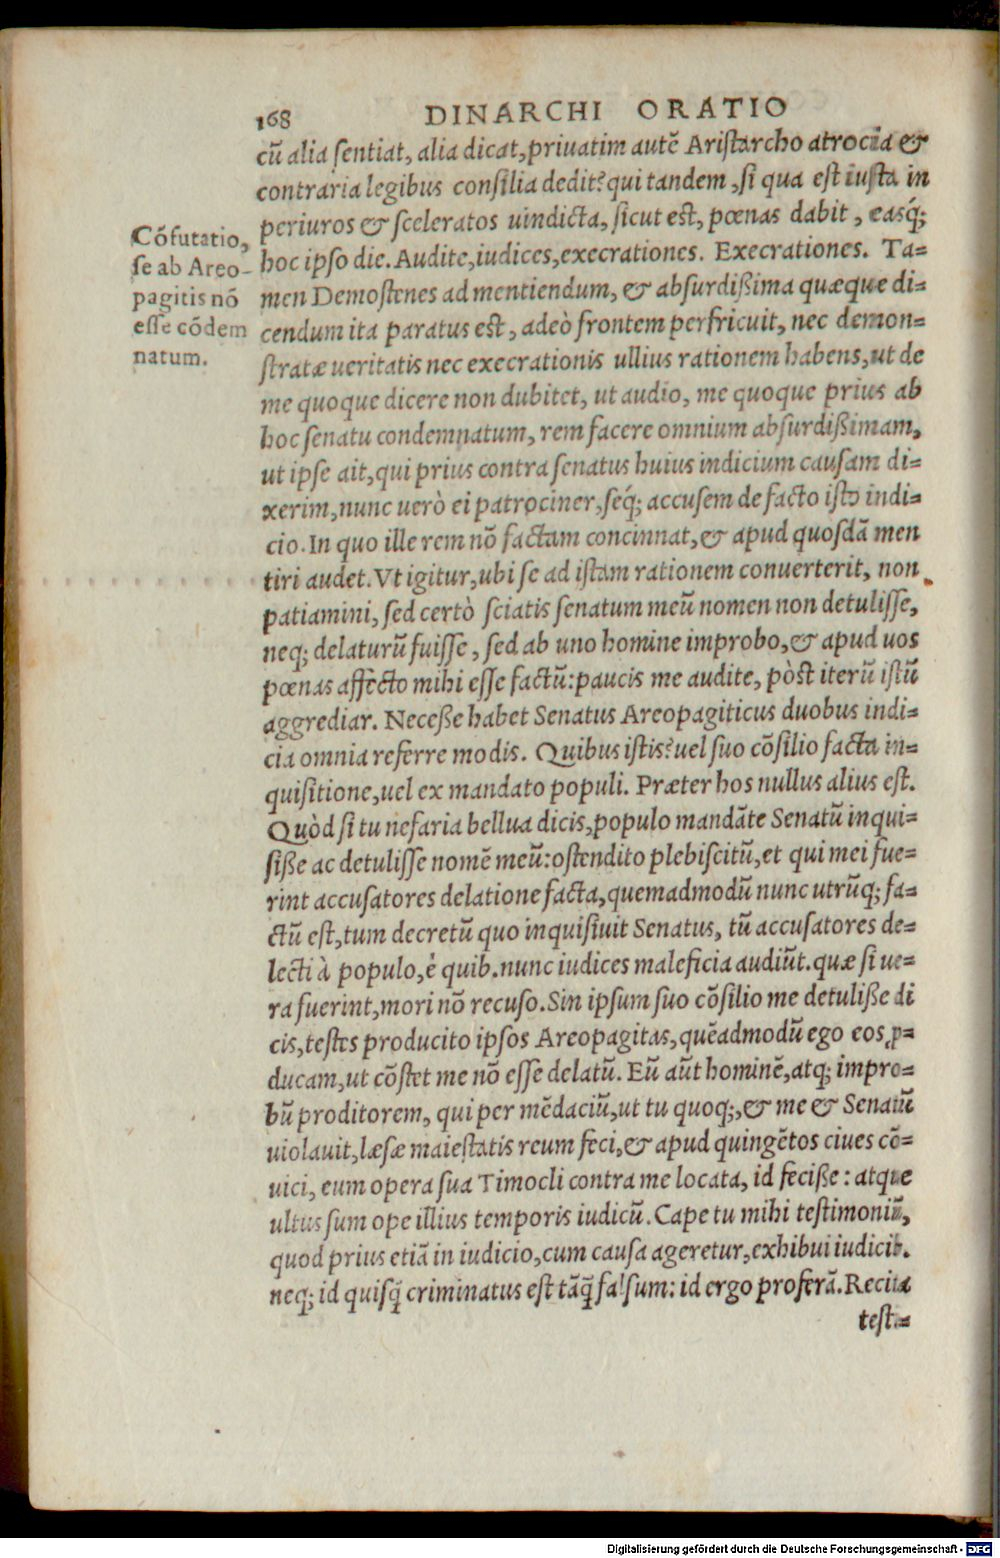 168 DINARCHI ORATIO
cũ alia ſentiat, alia dicat, priuatim autẽ Ariſtarcho atrocia &
contraria legibus conſilia dedit? qui tandem, ſi qua eſt iuſta in
periuros & ſceleratos uindicta, ſicut eſt, pœnas dabit, easq́;
hoc ipſo die. Audite, iudices, execrationes. Execrationes. Ta=
men Demoſtenes ad mentiendum, & abſurdißima quæque di=
cendum ita paratus eſt, adeò frontem perfricuit, nec demon=
ſtratæ ueritatis nec execrationis ullius rationem habens, ut de
me quoque dicere non dubitet, ut audio, me quoque prius ab
hoc ſenatu condemnatum, rem facere omnium abſurdißimam,
ut ipſe ait, qui prius contra ſenatus huius indicium cauſam di=
xerim, nunc uerò ei patrociner, ſeq́; accuſem de facto iſto indi=
cio. In quo ille rem nõ factam concinnat, & apud quoſdã men
tiri audet. Vt igitur, ubi ſe ad iſtam rationem conuerterit, non
patiamini, ſed certò ſciatis ſenatum meũ nomen non detuliſſe,
neq; delaturũ fuiſſe, ſed ab uno homine improbo, & apud uos
pœnas affecto mihi eſſe factũ: paucis me audite, pòſt iterũ iſtũ
aggrediar. Neceße habet Senatus Areopagiticus duobus indi=
cia omnia referre modis. Quibus iſtis? uel ſuo cõſilio facta in=
quiſitione, uel ex mandato populi. Præter hos nullus alius eſt.
Quòd ſi tu nefaria bellua dicis, populo mandãte Senatũ inqui=
ſiße ac detuliſſe nomẽ meũ: oſtendito plebiſcitũ, et qui mei fue=
rint accuſatores delatione facta, quemadmodũ nunc utrũq; fa=
ctũ eſt, tum decretũ quo inquiſiuit Senatus, tũ accuſatores de=
lecti à populo, è quib. nunc iudices maleficia audiũt. quæ ſi ue=
ra fuerint, mori nõ recuſo. Sin ipſum ſuo cõſilio me detuliße di
cis, teſtes producito ipſos Areopagitas, quẽadmodũ ego eos ꝓ=
ducam, ut cõſtet me nõ eſſe delatũ. Eũ aũt hominẽ, atq; impro=
bũ proditorem, qui per mẽdaciũ, ut tu quoq;, & me & Senatũ
uiolauit, læſæ maieſtatis reum feci, & apud quingẽtos ciues cõ=
uici, eum opera ſua Timocli contra me locata, id feciße: atque
ultus ſum ope illius temporis iudicũ. Cape tu mihi teſtimoniũ,
quod prius etiã in iudicio, cum cauſa ageretur, exhibui iudicib.
neq; id quiſq̃ criminatus eſt tãq̃ falſum: id ergo proferã. Recita
teſti=
Cõfutatio,
ſe ab Areo-
pagitis nõ
eſſe cõdem
natum.
Digitalisierung gefördert durch die Deutsche Forschungsgemeinschaft - DFG